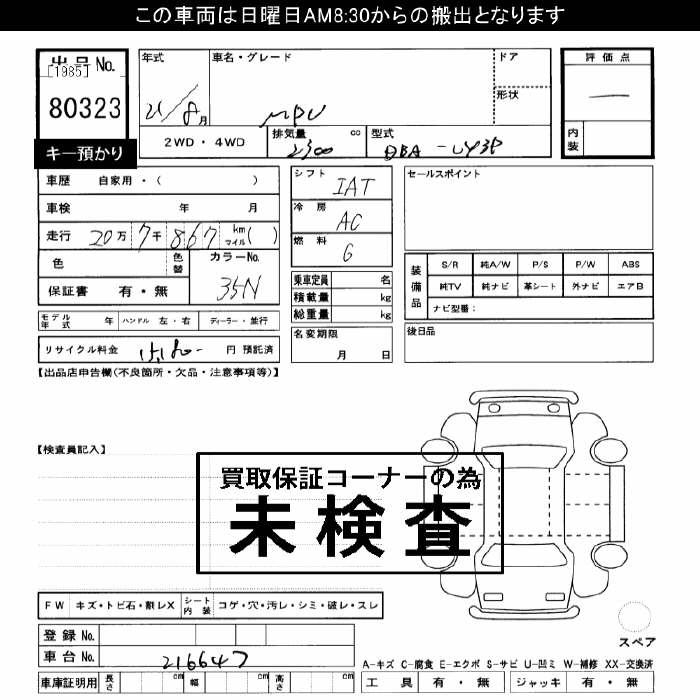 この車両は日曜日AM8:30からの搬出となります
出品 No.
[1985]
80323
キー預かり
年式 車名・グレード ドア
21/8月 MPV 形状
2WD・4WD 排気量 2300 cc 型式 DBA-LY3P
評価点
―
内装
車歴 自家用・( )
車検 年 月
走行 20万 7千 867 km マイル( )
色 色替 カラーNo.
保証書 有・無 35N
シフト IAT
冷房 AC
燃料 G
乗車定員 名
積載量 kg
総重量 kg
セールスポイント
装備品 S/R 純A/W P/S P/W ABS
純TV 純ナビ 革シート 外ナビ エアB
ナビ型番:
モデル年式 年 ハンドル 左・右 ディーラー・並行
名変期限
月 日
後日品
リサイクル料金 15,180- 円 預託済
【出品店申告欄(不良箇所・欠品・注意事項等)】
【検査員記入】
買取保証コーナーの為
未検査
FW キズ・トビ石・割レX シート内装 コゲ・穴・汚レ・シミ・破レ・スレ
登録 No.
車台 No. 216647
車庫証明用 長さ cm 幅 cm 高さ cm
スペア
A-キズ C-腐食 E-エクボ S-サビ U-凹ミ W-補修 XX-交換済
工具 有・無 ジャッキ 有・無